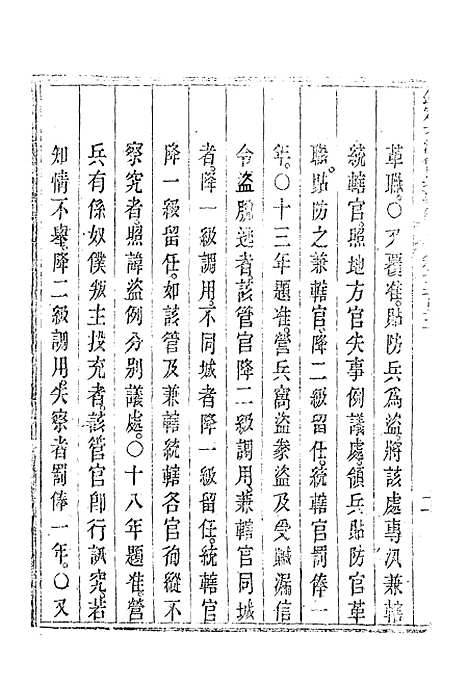 革職。○又覆准。貼防兵爲盜。將該處專汛兼轄
統轄官。照地方官失事例議處。領兵貼防官革
職。貼防之兼轄官。降二級留任。統轄官罰俸一
年。○十三年題准。營兵窩盜豢盜及受贓漏信
令盜脫逃者。該管官降二級調用。兼轄官同城
者。降一級調用。不同城者降一級留任。統轄官
降一級留任。如該管及兼轄統轄各官徇縱不
察究者。照諱盜例分别議處。○十八年題准。營
兵有係奴僕叛主投充者。該管官卽行訊究。若
知情不舉。降二級調用。失察者罰俸一年。○又